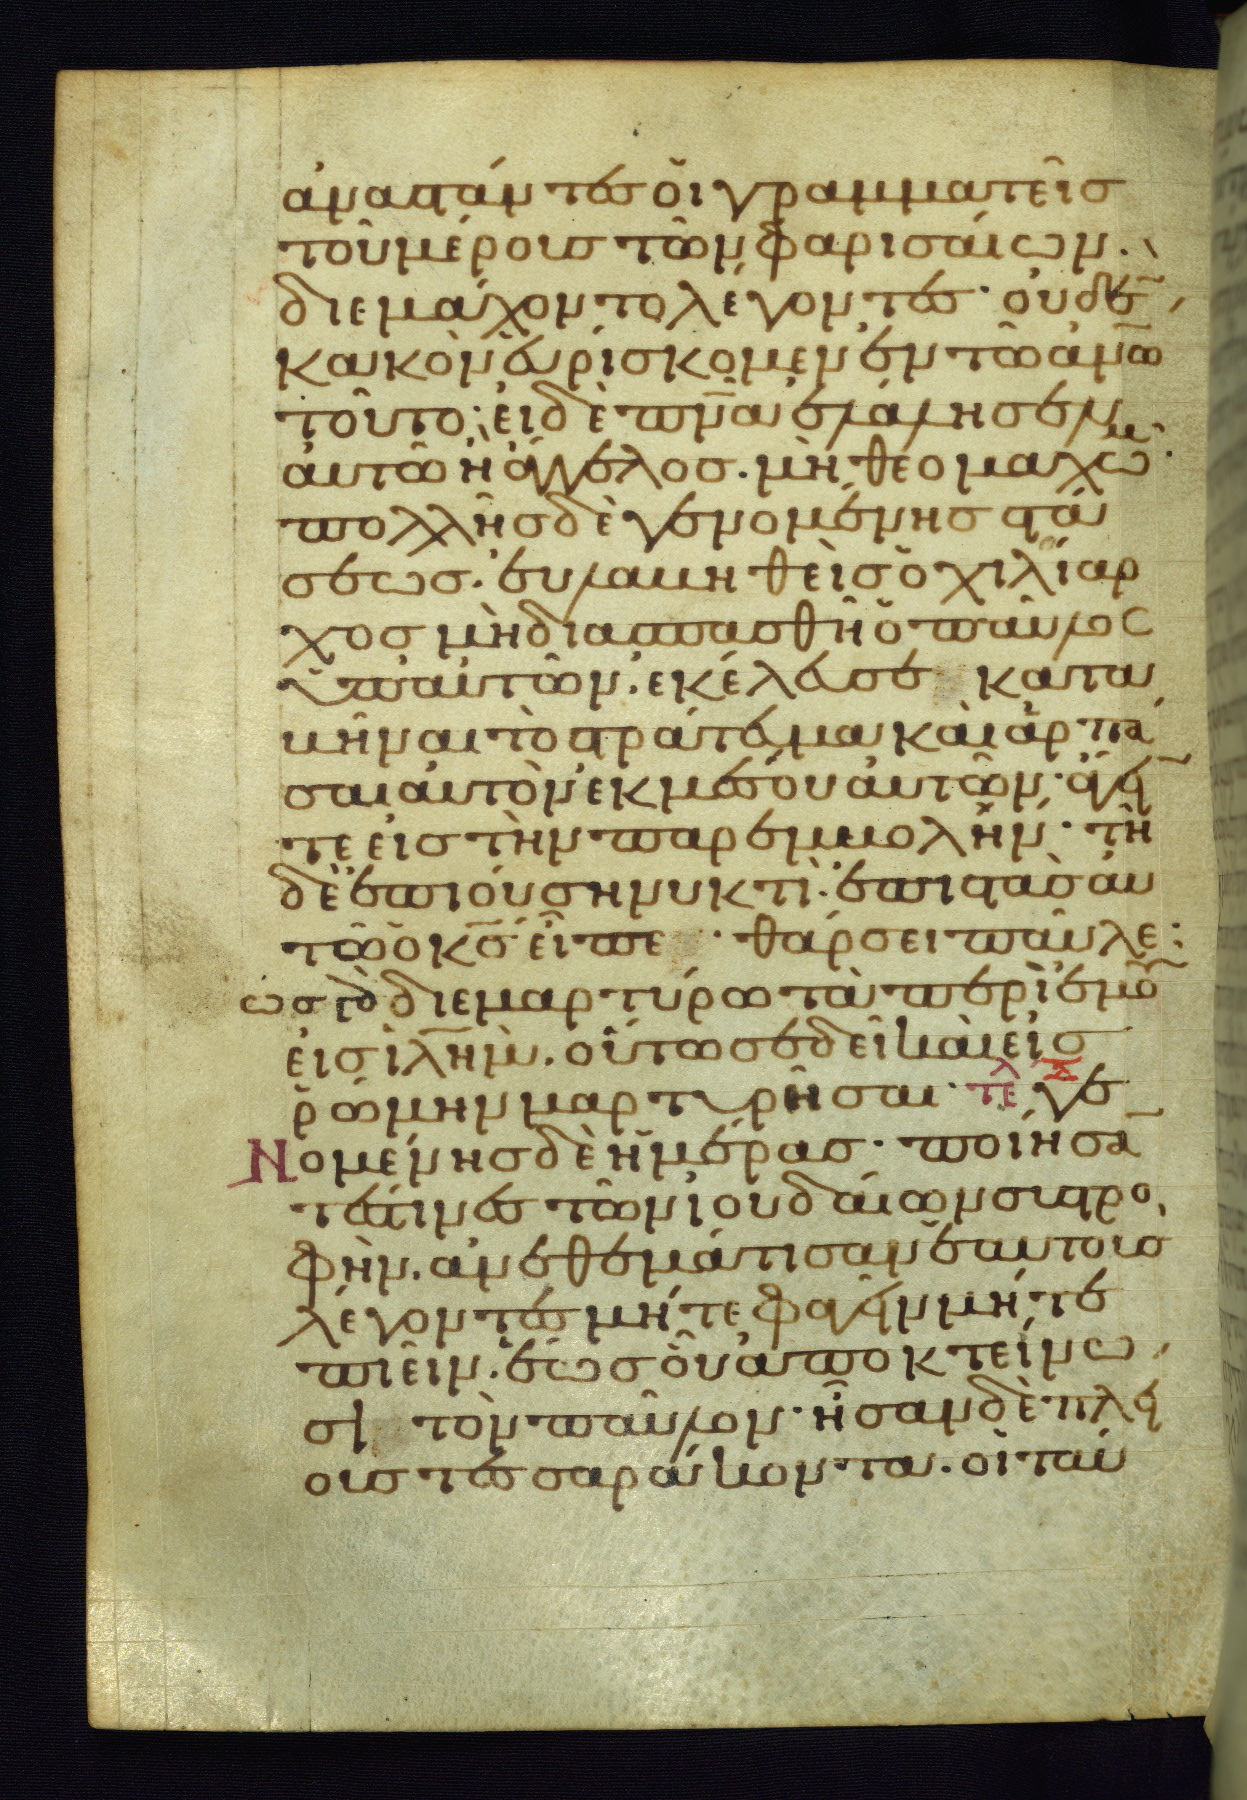 ἀναστάντεσ ὁι γραμματεῖσ
τοῦ μέρουσ τῶν φαρισάιων.
διεμάχοντο λέγοντεσ· οὐδε̄
κακὸν ἑυρίσκομεν ἐν τῶ ἀν̅ω
τοῦτω· ἐι δὲ πν̅α ἐλάλησεν
ἀυτῶ ἢ ἄγγελοσ. μὴ θεομαχῶμ̅·
πολλῆσ δὲ γενομένησ στά
σεωσ. ἐυλαβηθεὶσ ὁ χιλίαρ
χοσ μὴ διασπασθῆ ὁ παῦλοσ
ὑπ' ἀυτῶν. ἐκέλευσε κατα
βῆναι τὸ στράτευμα καὶ ἁρπά
σαι ἀυτὸν ἐκ μέσου ἀυτῶν· ἄγει̅
τε εἰσ τὴν παρεμβολήν· τῆ
δὲ ἐπιούση νυκτὶ. ἐπιστὰσ ἀυ
τῶ ὁ κ̅σ ἐῖπε · θάρσει παῦλε·
ὡσ γὰρ διεμαρτύρω τὰ περὶ ἐμοῦ
εἰσ ἰλ̅ημ̀. οὕτωσ σε δεῖ καὶ εἰσ
ῥώμην μαρτυρῆσαι· τελ γε
Νομένησ δὲ ἡμέρασ· ποιήσα̅
τέσ τινεσ τῶν ἰουδάιων συστρο
φὴν. ἀνεθεμάτισαν ἑαυτουσ
λέγοντεσ μήτε φαγεῖν μήτε
πιεῖν. ἕωσ οὗ ἀποκτείνω
σι τὸν παῦλον· ἦσαν δὲ πλεί
ουσ τεσσαράκοντα. οἱ ταύ